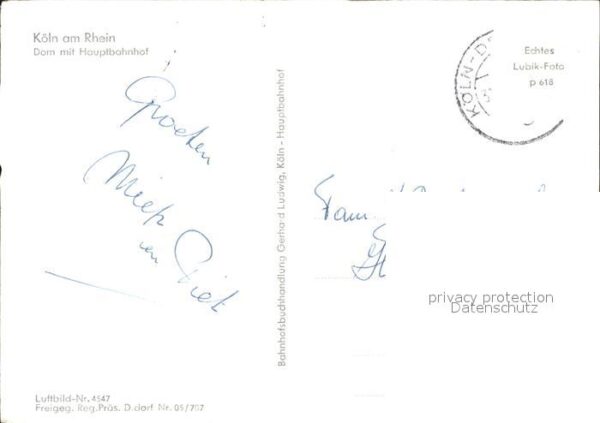 Köln am Rhein
Dom mit Hauptbahnhof
Groeten
Miep
en Piet
Bahnhofsbuchhandlung Gerhard Ludwig, Köln - Hauptbahnhof
KÖLN-D
Echtes
Lubik-Foto
p 618
Fam
privacy protection
Datenschutz
Luftbild-Nr. 4547
Freigeg. Reg.Präs. D.dorf Nr. 05/707